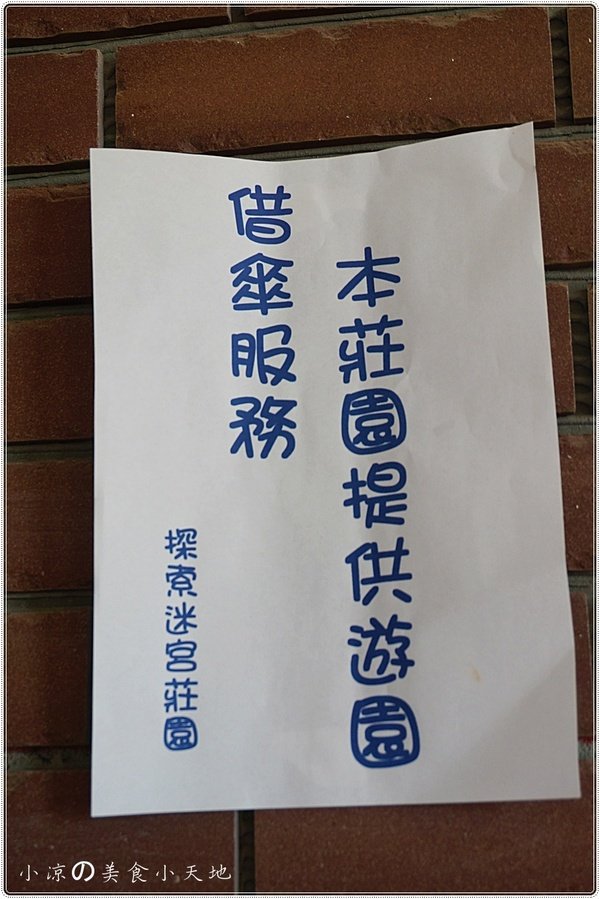 本莊園提供遊園
借傘服務
探索迷宮莊園
小凉の美食小天地